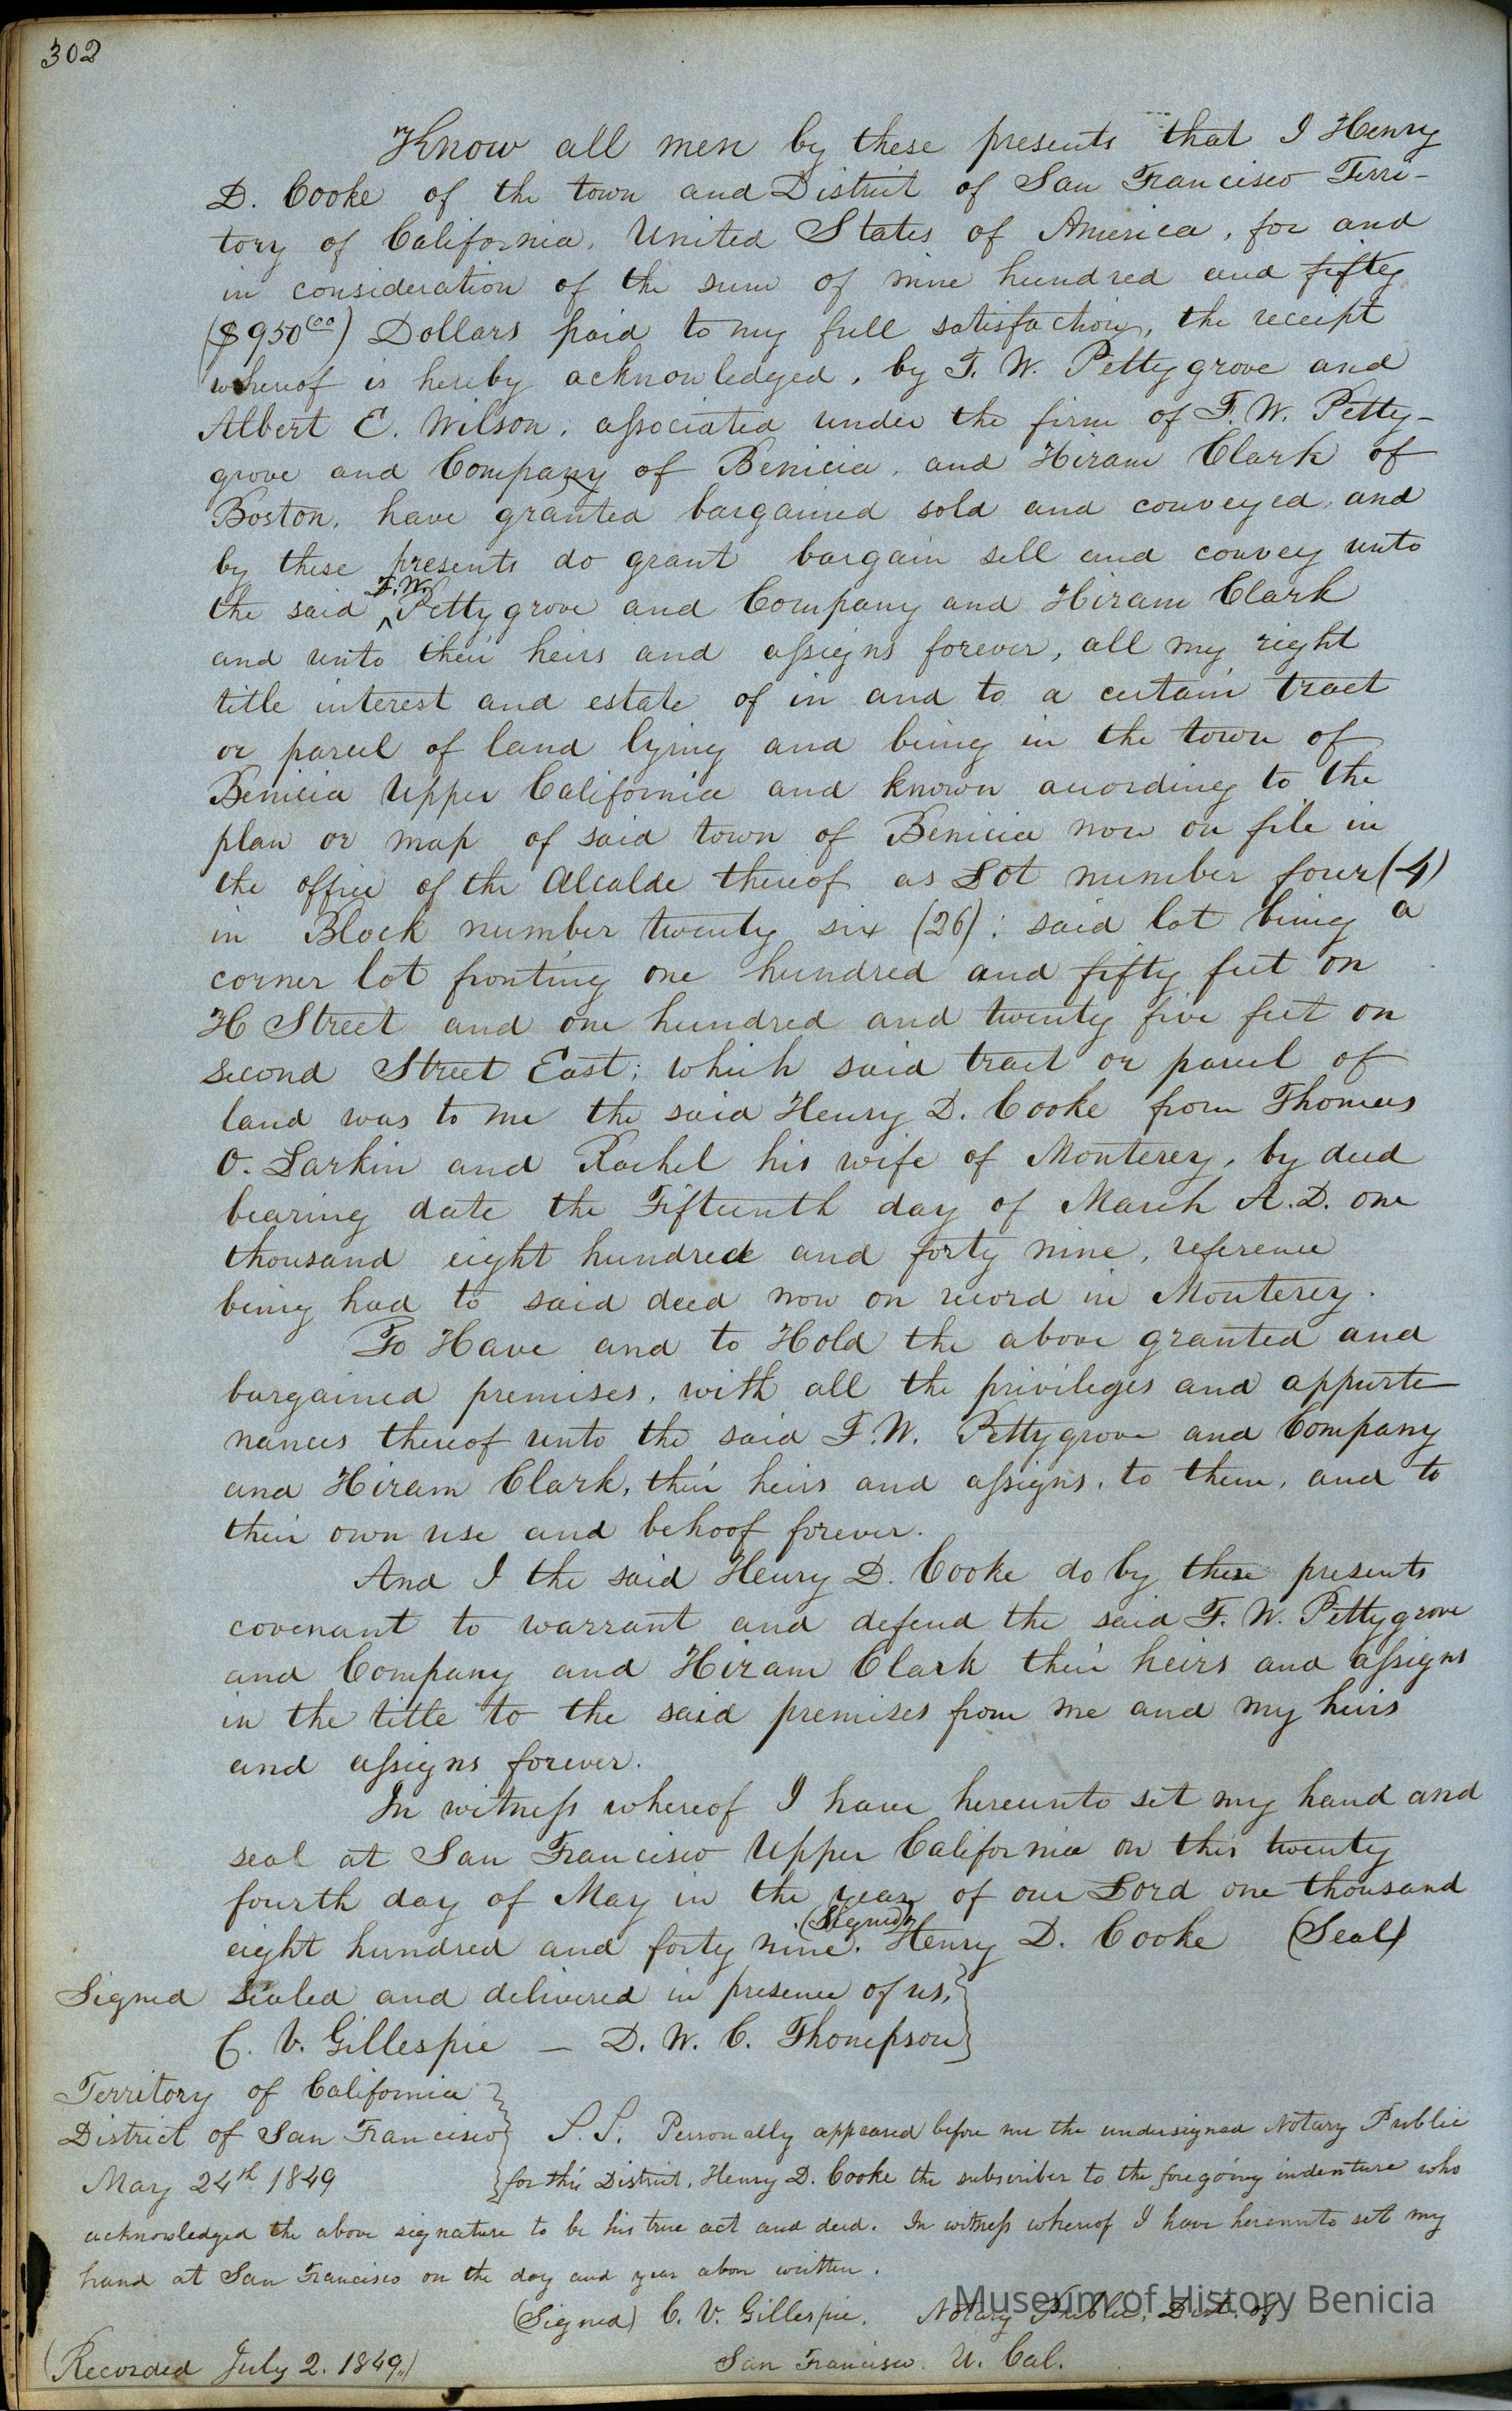 302
Know all men by these presents that I Henry
D. Cooke of the town and District of San Francisco Terri-
tory of California, United States of America, for and
in consideration of the sum of nine hundred and fifty
($950 00) Dollars paid to my full satisfaction, the receipt
whereof is hereby acknowledged, by F. W. Pettygrove and
Albert E. Wilson, associated under the firm of F. W. Petty-
grove and Company of Benicia, and Hiram Clark of
Boston, have granted bargained sold and conveyed, and
by these presents do grant bargain sell and convey unto
the said F.W. Pettygrove and Company and Hiram Clark
and unto their heirs and assigns forever, all my right
title interest and estate of in and to a certain tract
or parcel of land lying and being in the town of
Benicia Upper California and known according to the
plan or map of said town of Benicia now on file in
the office of the Alcalde thereof as Lot number four (4)
in Block number twenty six (26): said lot being a
corner lot fronting one hundred and fifty feet on
H Street and one hundred and twenty five feet on
second Street East; which said tract or parcel of
land was to me the said Henry D. Cooke from Thomas
O. Larkin and Rachel his wife of Monterey, by deed
bearing date the Fifteenth day of March A.D. one
thousand eight hundred and forty nine, reference
being had to said deed now on record in Monterey.
To Have and to Hold the above granted and
bargained premises, with all the privileges and appurte
nances thereof unto the said F.W. Pettygrove and Company
and Hiram Clark, their heirs and assigns, to them, and to
their own use and behoof forever.
And I the said Henry D. Cooke do by these presents
covenant to warrant and defend the said F. W. Pettygrove
and Company and Hiram Clark their heirs and assigns
in the title to the said premises from me and my heirs
and assigns forever.
In witness whereof I have hereunto set my hand and
seal at San Francisco Upper California on this twenty
fourth day of May in the year of our Lord one thousand
eight hundred and forty nine. (Signed) Henry D. Cooke (Seal)
Signed Sealed and delivered in presence of us,
C. V. Gillespie — D. W. C. Thompson
Territory of California
District of San Francisco S.S. Personally appeared before me the undersigned Notary Public
May 24th 1849 for this District, Henry D. Cooke the subscriber to the foregoing indenture who
acknowledged the above signature to be his true act and deed. In witness whereof I have hereunto set my
hand at San Francisco on the day and year above written.
(Signed) C. V. Gillespie, Notary Public, Dist. of
Museum of History Benicia
San Francisco. U. Cal.
(Recorded July 2. 1849.)